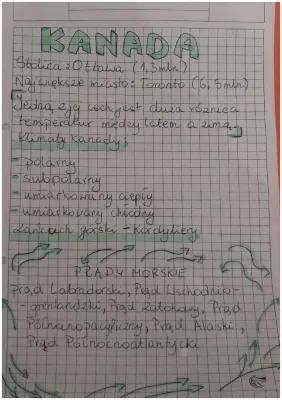 KANADA
Stolica: Ottawa (1,3mln)
Największe miasto: Toronto (6,5mln)
Jedną z jej cech jest duża różnica
temperatur między latem a zimą.
Klimaty Kanady:
- polarny
- subpolarny
- umiarkowany ciepły
- umiarkowany chłodny
Łańcuch górski - Kordyliery
PRĄDY MORSKIE
Prąd Labradorski, Prąd Wschodnio-
-grenlandzki, Prąd Zatokowy, Prąd
Północnopacyficzny, Prąd Alaski,
Prąd Północnoatlantycki